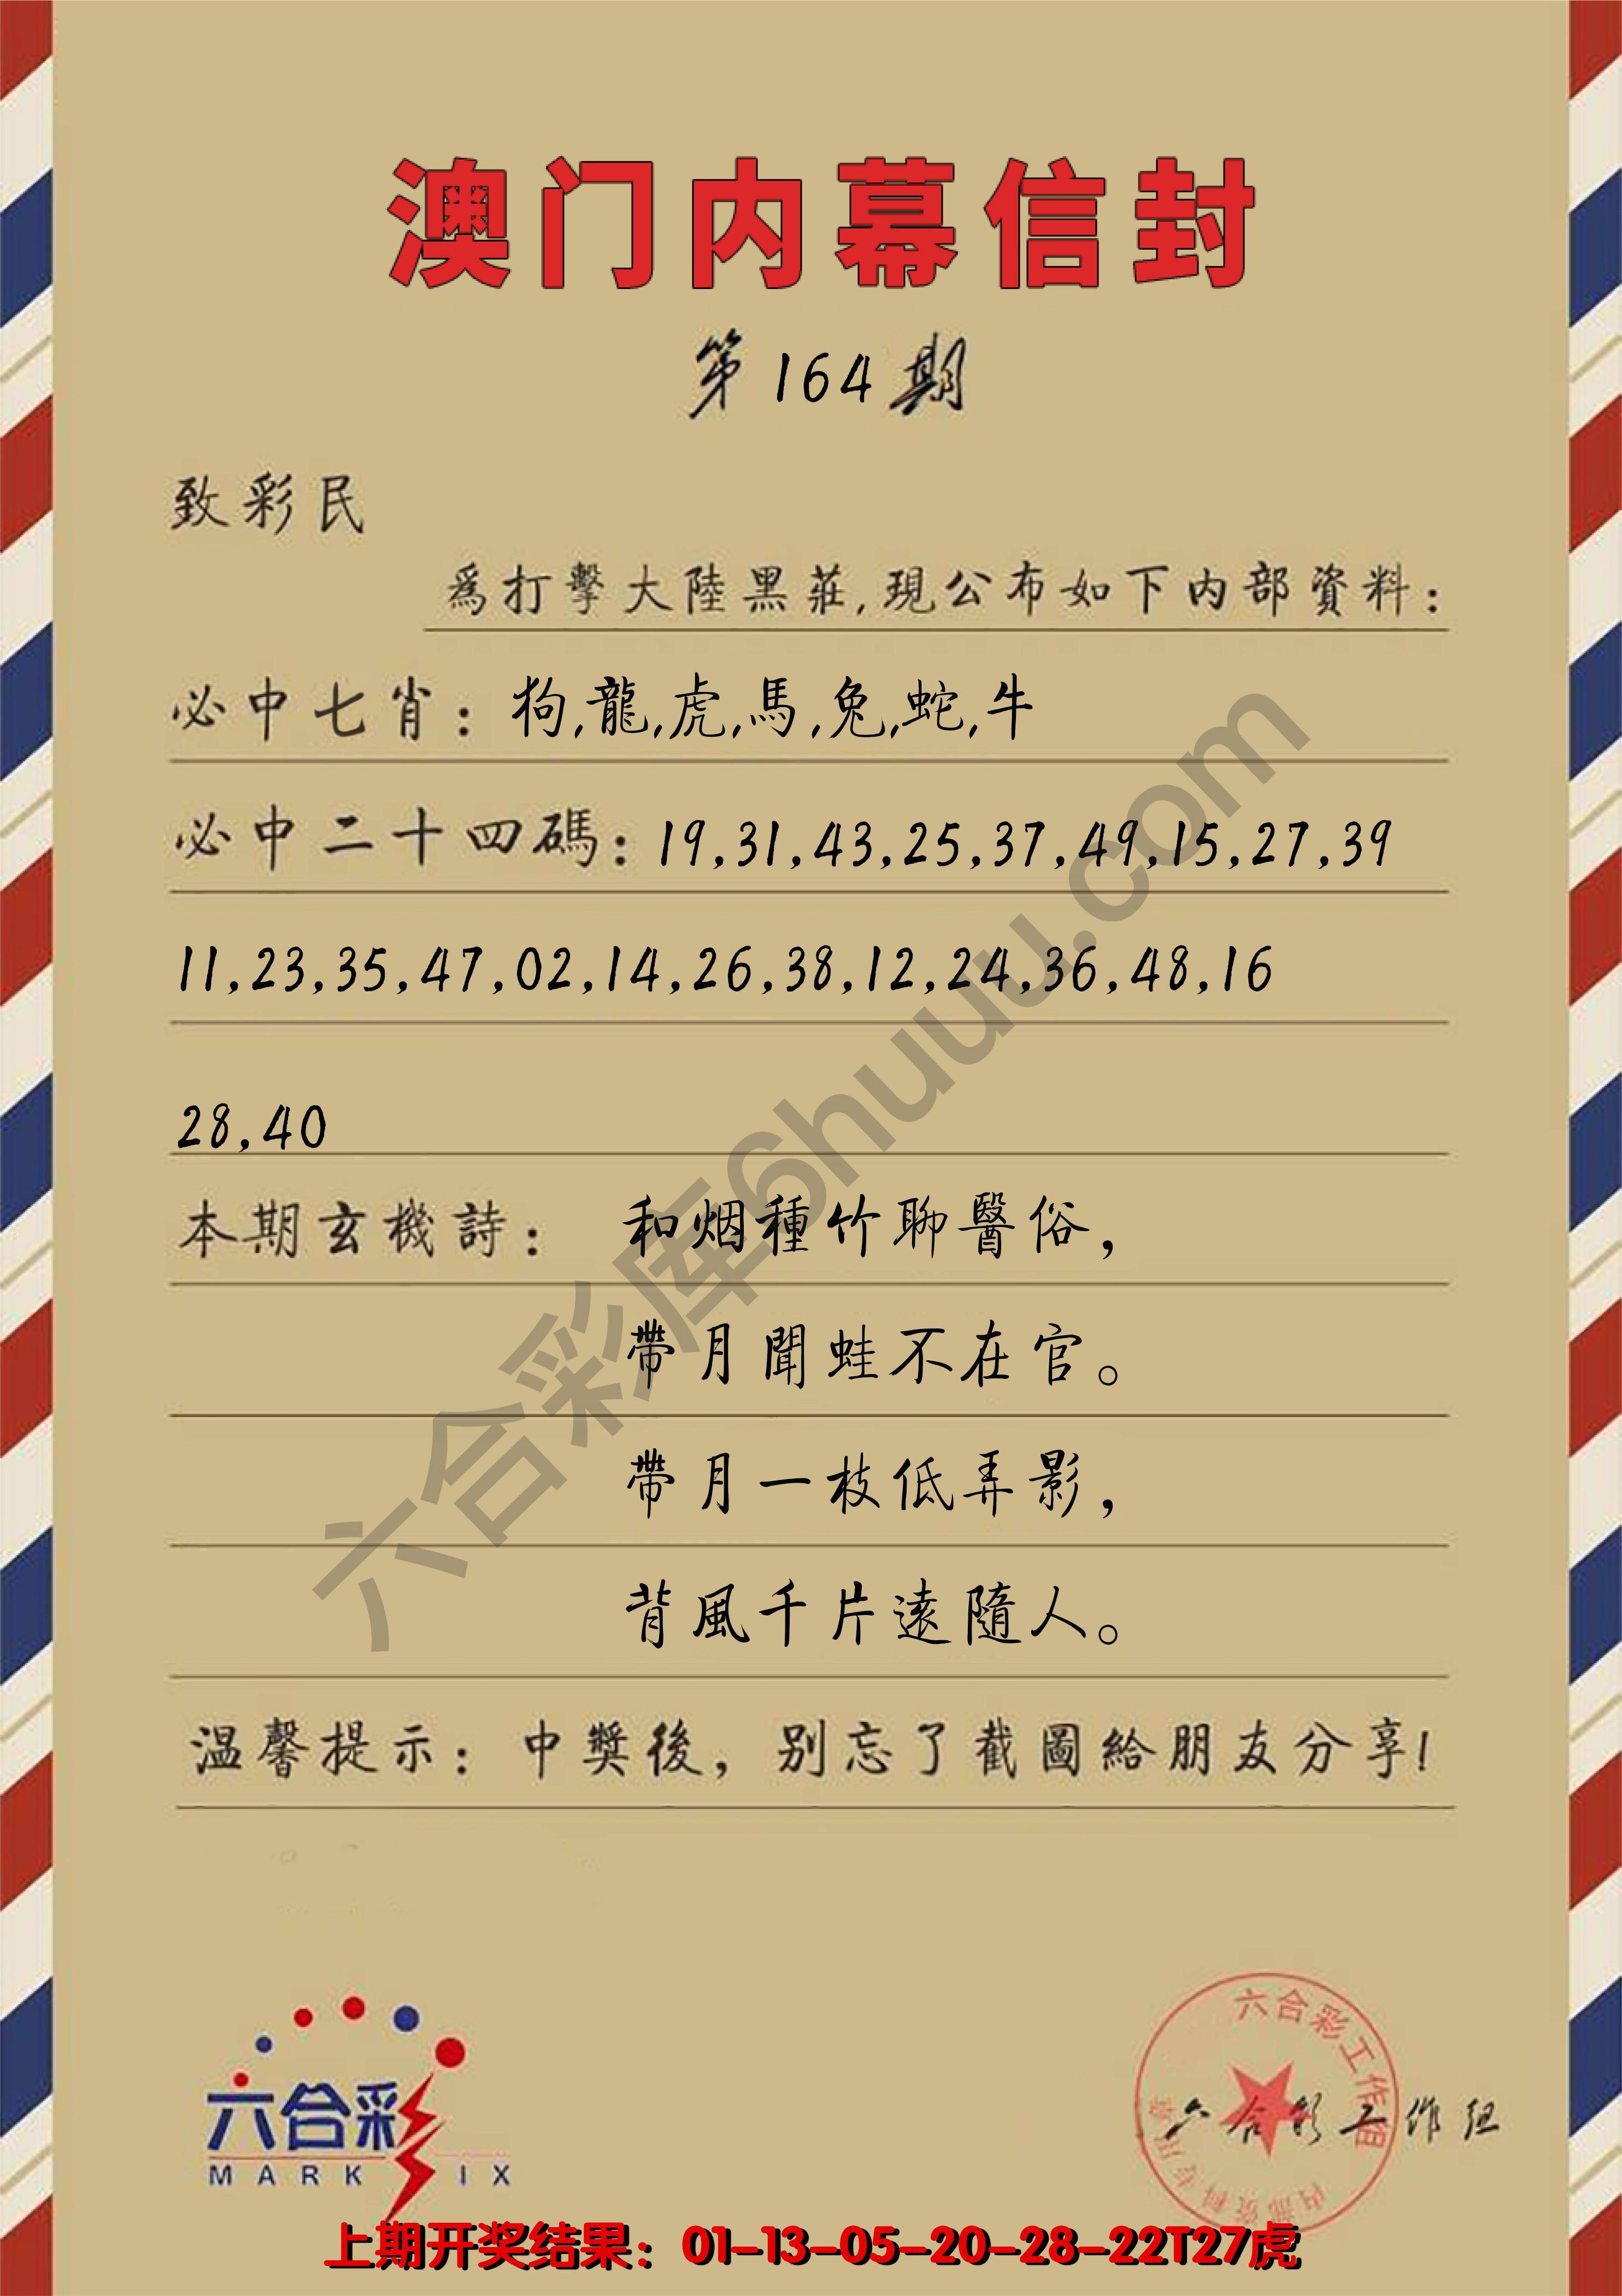 澳门内幕信封
第164期
致彩民
爲打擊大陸黑莊,現公布如下内部資料:
必中七肖: 狗,龍,虎,馬,兔,蛇,牛
必中二十四碼: 19,31,43,25,37,49,15,27,39
11,23,35,47,02,14,26,38,12,24,36,48,16
28,40
本期玄機詩: 和烟種竹聊醫俗,
帶月聞蛙不在官。
帶月一枝低弄影,
背風千片遠隨人。
温馨提示: 中獎後, 别忘了截圖給朋友分享!
六合彩库6huuu.com
六合彩
MARK IX
六合彩工作组
内部资料专用章
六合彩工作组
上期开奖结果: 01-13-05-20-28-22T27虎